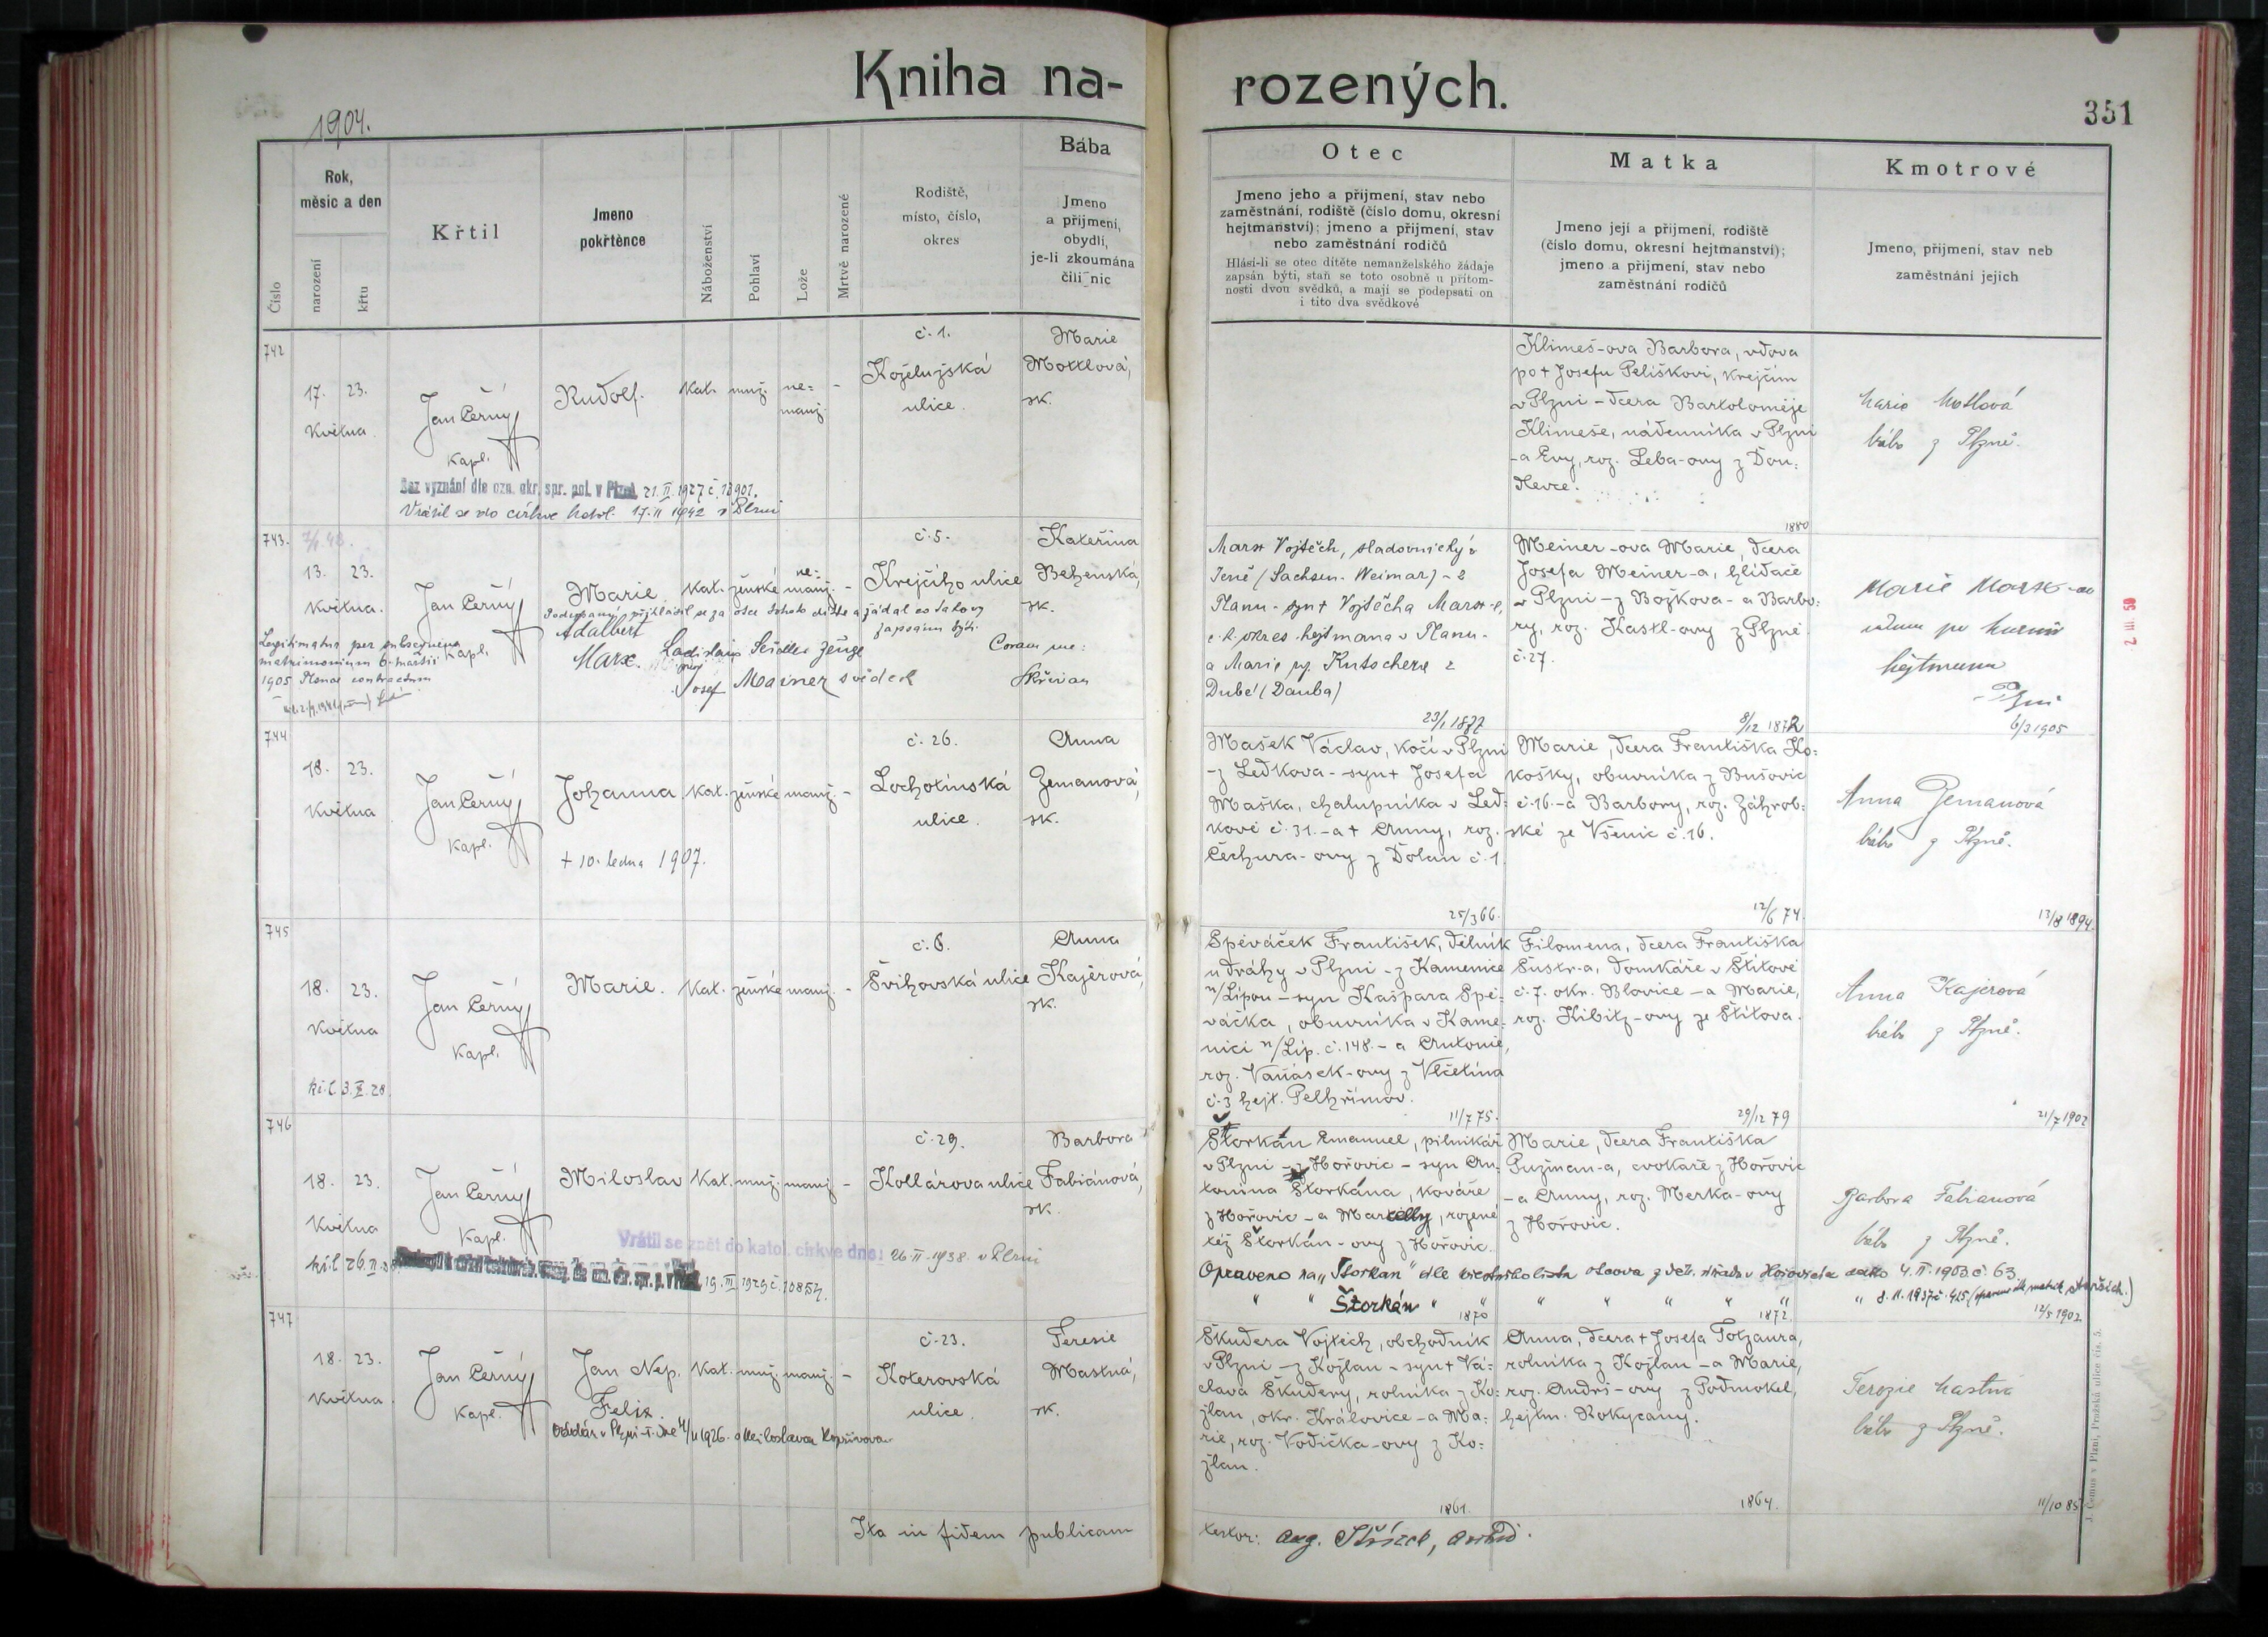 Kniha na-
rozených.
1904.
351
Číslo
Rok,
měsíc a den
narození
křtu
Křtil
Jmeno
pokřtěnce
Náboženství
Pohlaví
Lože
Mrtvě narozené
Rodiště,
místo, číslo,
okres
Bába
Jmeno
a přijmení,
obydlí,
je-li zkoumána
čili nic
Otec
Jmeno jeho a přijmení, stav nebo
zaměstnání, rodiště (číslo domu, okresní
hejtmanství); jmeno a přijmení, stav
nebo zaměstnání rodičů
Hlásí-li se otec dítěte nemanželského žádaje
zapsán býti, staň se toto osobně u přítom-
nosti dvou svědků, a mají se podepsati on
i tito dva svědkové
Matka
Jmeno její a přijmení, rodiště
(číslo domu, okresní hejtmanství);
jmeno a přijmení, stav nebo
zaměstnání rodičů
Kmotrové
Jmeno, přijmení, stav neb
zaměstnání jejich
742
17. 23.
Května
Jan Černý
Kapl.
Rudolf.
Kat. muž. ne=
manž. -
č. 1.
Koželužská
ulice.
Marie
Mottlová,
zk.
Klimeš-ova Barbora, vdova
po † Josefu Peliškovi, krejčím
v Plzni - dcera Bartoloměje
Klimeše, nádenníka v Plzni
-a Evy, roz. Leba-ovy z Dou=
Bez vyznání dle ozn. okr. spr. pol. v Plzni 21. II. 1927 č.
Vrátil se do církve katol. 17. II 1942 v Plzni
Marie Motlová
bába z Plzně.
1880
743.
13. 23.
Května.
Jan Černý
Kapl.
Marie
Kat. ženské ne=
manž. -
č. 5.
Krejčího ulice
Kateřina
Behenská,
zk.
Podepsaný přihlásil se za otce tohoto dítěte a žádal co takový
zapsán býti.
Adalbert
Marx.
Ladislaus Seidler Zeuge
Josef Mainer svědek
Coram me:
Legitimata per subsequens
matrimonium 6. martii
1905 Planae contractum
Marx Vojtěch, sladovnický v
Jeně (Sachsen-Weimar) - z
Planu - syn † Vojtěcha Marx-e,
c. k. okres. hejtmana v Planu -
a Marie roz. Kutschera z
Dubé (Dauba)
Meiner-ova Marie, dcera
Josefa Meiner-a, hlídače
v Plzni - z Božkova - a Barbo=
ry, roz. Kastl-ovy z Plzně
č. 27.
Marie Marx-ová
hejtmana
23/1 1877
8/12 1872
6/3 1905
744
18. 23.
Května
Jan Černý
Kapl.
Johanna
Kat. ženské manž. -
č. 26.
Lochotínská
ulice.
Anna
Zemanová,
zk.
† 10. ledna 1907.
Mašek Václav, kočí v Plzni
-z Ledkova - syn † Josefa
Maška, chalupníka v Led=
kově č. 31. - a † Anny, roz.
Čechura-ovy z Dolan č. 1.
Marie, dcera Františka Ko=
košky, obuvníka z Bušovic
č. 16. - a Barbory, roz. Záhrob=
ské ze Všenic č. 16.
Anna Zemanová
bába z Plzně.
25/3 66.
12/6 74.
13/8 1894.
745
18. 23.
Května
Jan Černý
Kapl.
Marie.
Kat. ženské manž. -
č. 6.
Švihovská ulice
Anna
Kajérová,
zk.
Spěváček František, dělník
u dráhy v Plzni - z Kamenice
n/Lípou - syn Kašpara Spě=
váčka, obuvníka v Kame=
nici n/Líp. č. 148. - a Antonie,
roz. Vaňásek-ovy z Vlčetína
č. 3 hejt. Pelhřimov.
Filomena, dcera Františka
Šustr-a, domkáře v Štítově
č. 7. okr. Blovice - a Marie,
roz. Kibitz-ovy ze Štítova.
Anna Kajerová
bába z Plzně.
11/7 75.
29/12 79
21/7 1902
746
18. 23.
Května
Jan Černý
Kapl.
Miloslav
Kat. muž. manž. -
č. 29.
Kollárova ulice
Barbora
Fabiánová,
zk.
Vrátil se zpět do katol. církve dne: 26. II. 1938. v Plzni
19. III. 1929 č.
Štorkán Emanuel, pilnikář
v Plzni - z Hořovic - syn An=
tonína Štorkána, kováře
z Hořovic - a Marcelly, rozené
též Štorkán-ovy z Hořovic.
Marie, dcera Františka
Pužman-a, cvokaře z Hořovic
- a Anny, roz. Merka-ovy
z Hořovic.
Barbora Fabianová
bába z Plzně.
Opraveno na „Štorkan" dle křestního listu otcova z děk. úřadu v Hořovicích dato 4. II. 1903. č. 63.
" " Štorkán " " " " " " " " 8. 11. 1937 č. 425
1870
1872.
12/5 1902
747
18. 23.
Května
Jan Černý
Kapl.
Jan Nep.
Felix.
Kat. muž. manž. -
č. 23.
Koterovská
ulice
Teresie
Mastná,
zk.
Oddán v Plzni-I. dne 4/11 1926. s Miloslavou Kopřivovou
Škudera Vojtěch, obchodník
v Plzni - z Kožlan - syn † Vá=
clava Škudery, rolníka z Ko=
žlan, okr. Kralovice - a Ma=
rie, roz. Vodička-ovy z Ko=
žlan.
Anna, dcera † Josefa Totzaura,
rolníka z Kožlan - a Marie,
roz. Andrš-ovy z Podmokel,
hejtm. Rokycany.
Terezie Mastná
bába z Plzně.
1861.
1864.
11/10 85
Ita in fidem publicam
testor: Aug.
J. Černý v Plzni, Pražská ulice čís. 5.